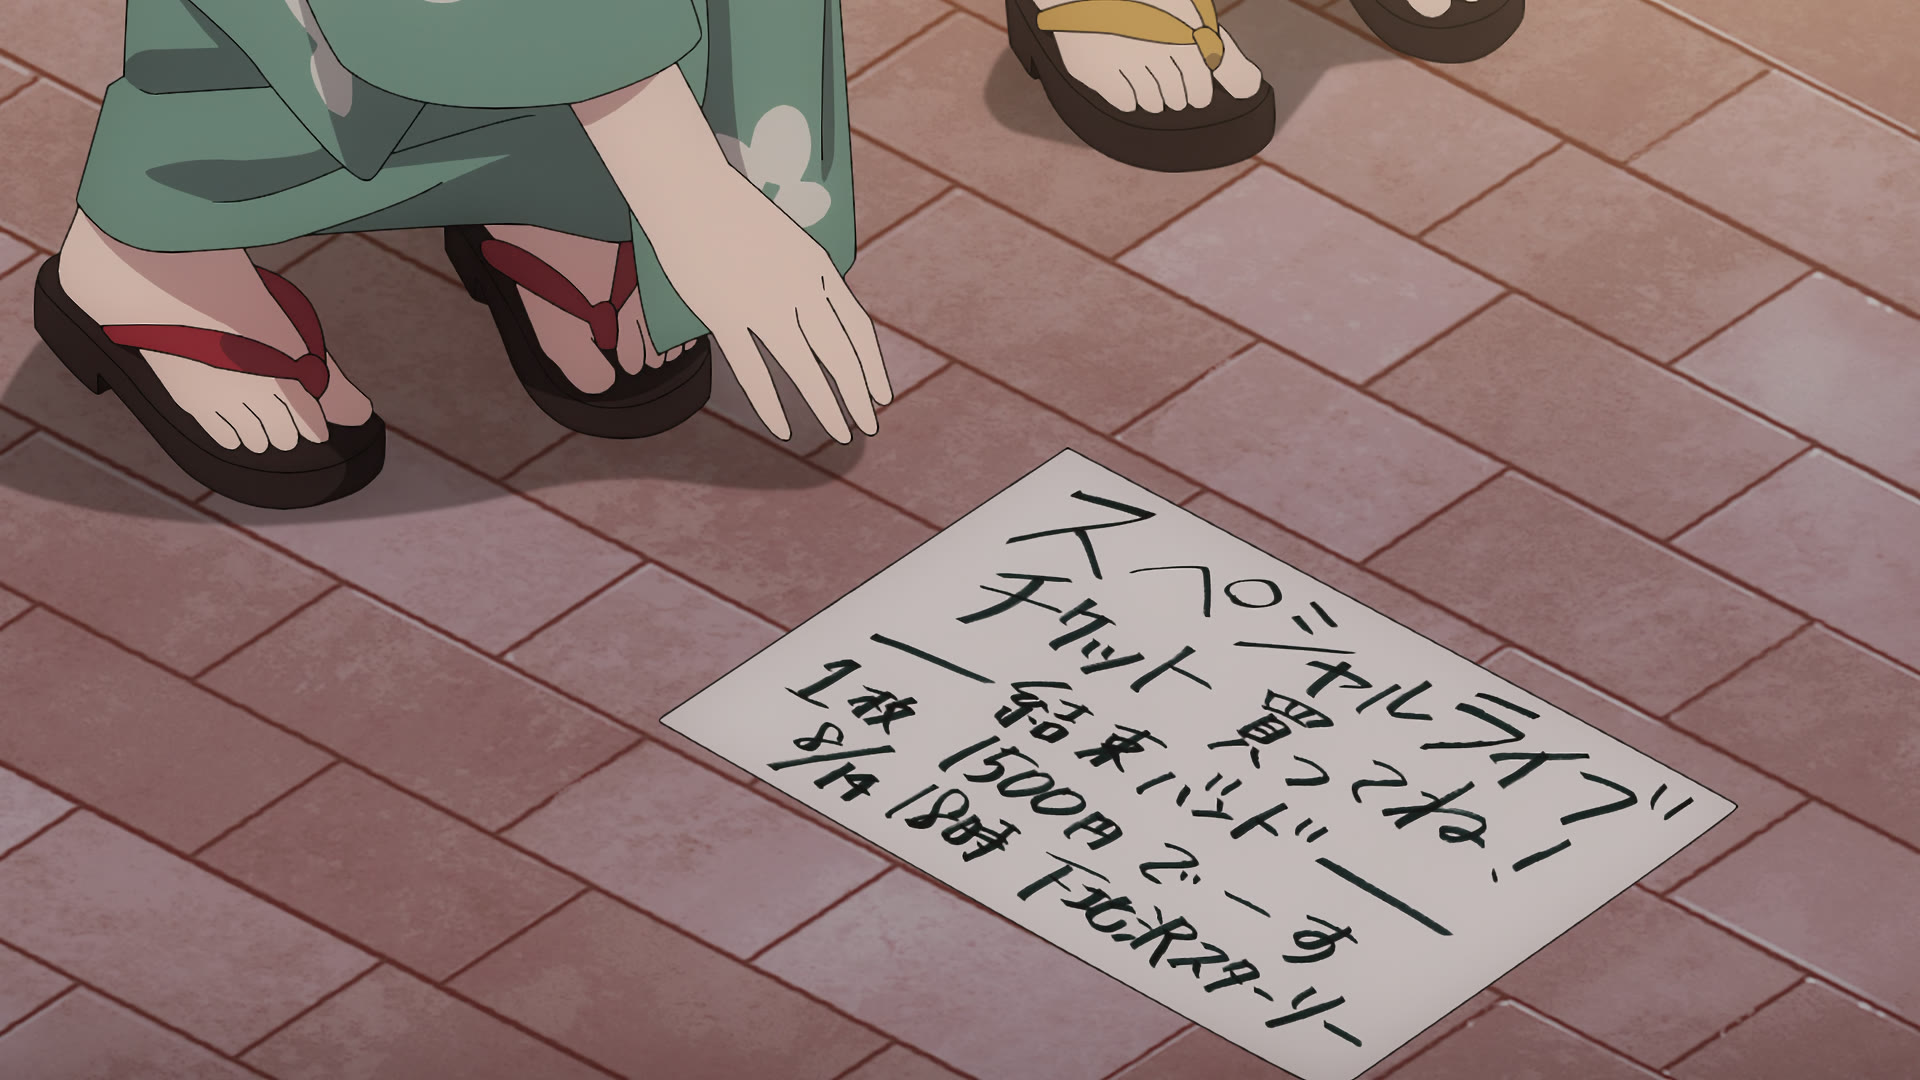 スペシャルライブ
チケット 買ってね!
━ 結束バンド ━
1枚 1500円でーす
8/14 18時 下北沢スターリー